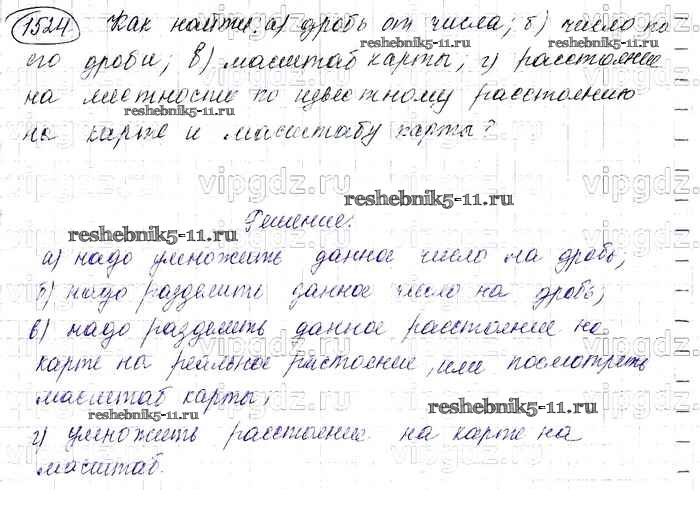 1524. Как найти: а) дробь от числа; б) число по
его дроби; в) масштаб карты; г) расстояние
на местности по известному расстоянию
на карте и масштабу карты?
Решение:
а) надо умножить данное число на дробь;
б) надо разделить данное число на дробь;
в) надо разделить данное расстояние на
карте на реальное расстояние, или посмотреть
масштаб карты;
г) умножить расстояние на карте на
масштаб.
reshebnik5-11.ru
reshebnik5-11.ru
reshebnik5-11.ru
reshebnik5-11.ru
reshebnik5-11.ru
reshebnik5-11.ru
reshebnik5-11.ru
reshebnik5-11.ru
reshebnik5-11.ru
vipgdz.ru
vipgdz.ru
vipgdz.ru
vipgdz.ru
vipgdz.ru
vipgdz.ru